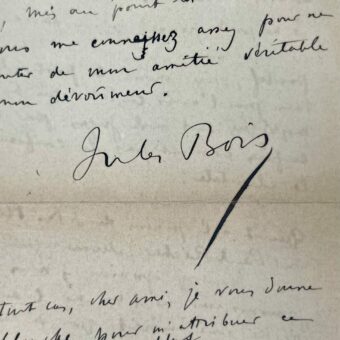 , mis au point
vous me connaissez assez pour ne
douter de mon amitié véritable
mon dévouement.
Jules Bois
tout cas, cher ami, je vous donne
pour m'attribuer ce